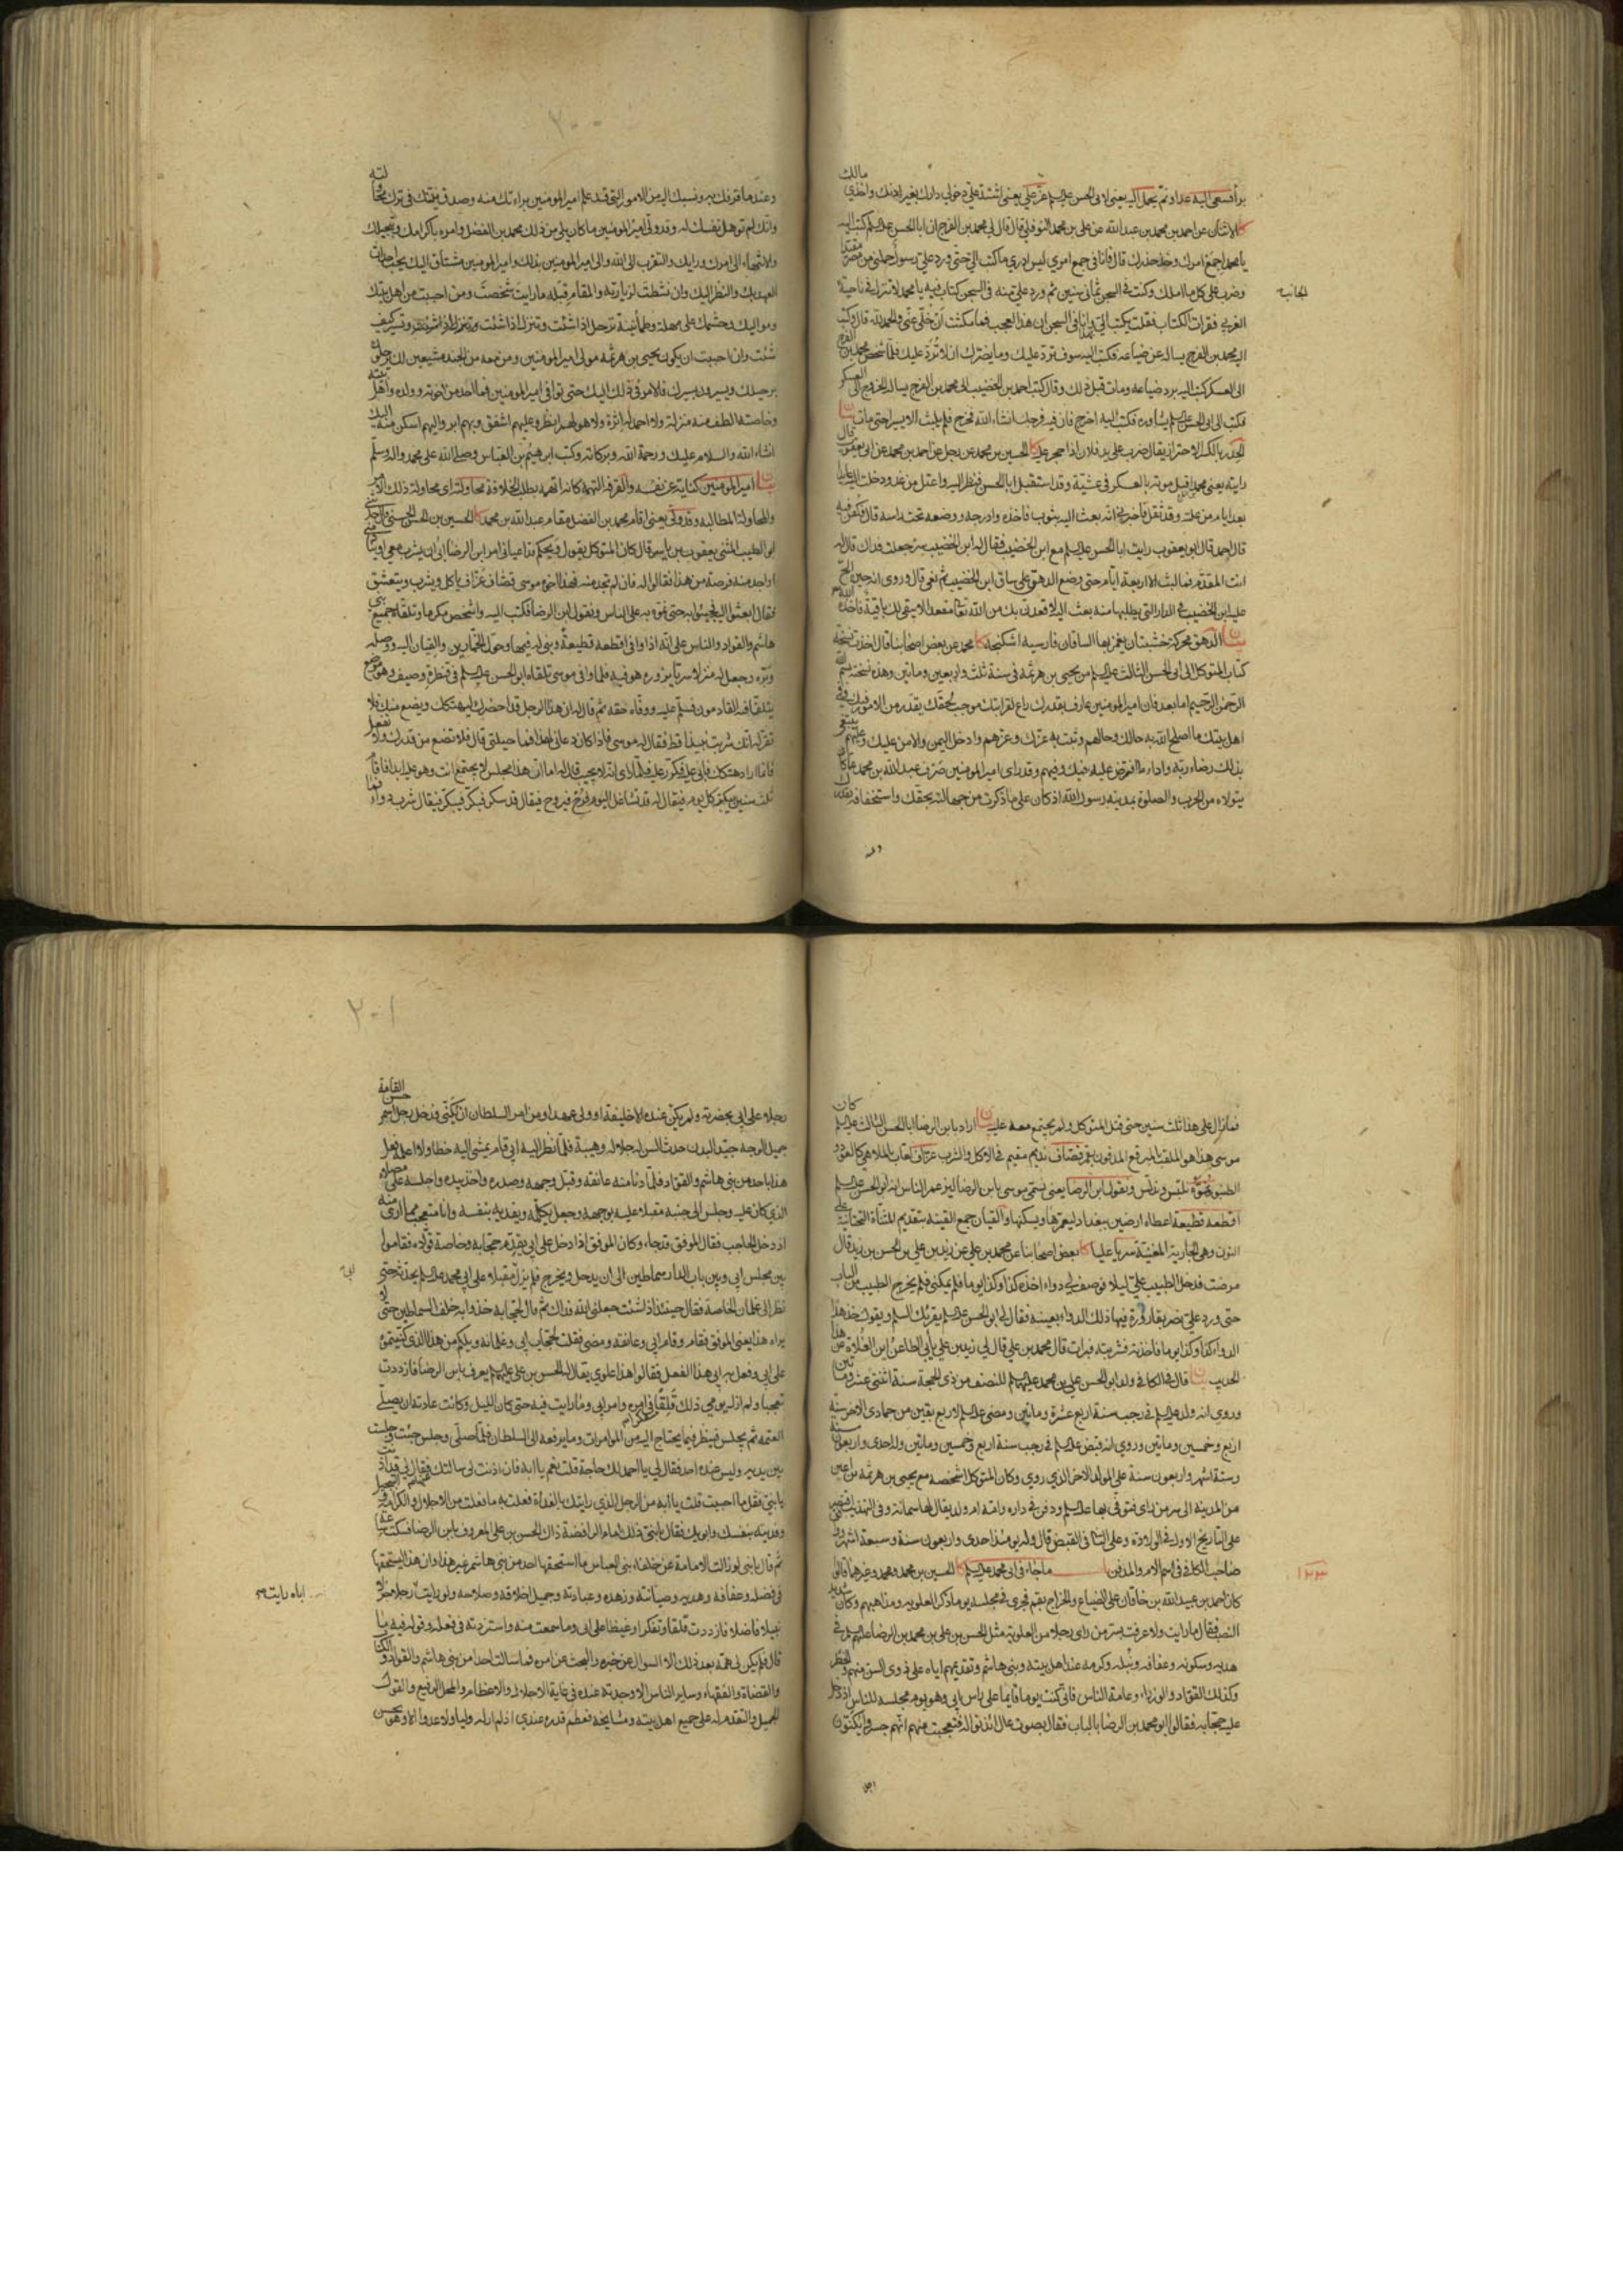 مالك
برأ فسعى اليه عدا ونم تجمل اليه يعني ابى الحسن عليه السلام عز علي يعني اشتد علي دخولي دارك بغير اذنك واخذي
كا الاثنان عن احمد بن محمد بن عبد الله عن علي بن محمد النوفلي قال قال لي محمد بن الفرج ان ابا الحسن عليه السلام كتب اليه
يا محمد اجمع امرك وخذ حذرك قال فانا في جمع امري ليس ادري ما كتب الي حتى ورد علي رسول حملني من مصر مقيدا
وضرب على كل ما املك وكنت في السجن ثماني سنين ثم ورد علي منه في السجن كتاب فيه يا محمد لا تنزل في ناحية
الجانب
الغربي فقرات الكتاب فقلت يكتب الي بهذا وانا في السجن ان هذا العجب فما مكثت ان خلي عني والحمد لله قال وكتب
اليه محمد بن الفرج يساله عن ضياعه فكتب اليه سوف ترد عليك وما يضرك ان لا ترد عليك فلما شخص محمد بن الفرج
الى العسكر كتب اليه برد ضياعه ومات قبل ذلك وقال كتب احمد بن الخضيب الى محمد بن الفرج يساله الخروج الى العسكر
فكتب الى ابى الحسن عليه السلام يشاوره فكتب اليه اخرج فان فيه فرجك انشاء الله فخرج فلم يلبث الا يسيرا حتى مات بيان
الحذر بالكسر الاحتراز يقال ضرب على يد فلان اذا حجر عليه كا الحسين بن محمد عن رجل عن احمد بن محمد عن ابى يعقوب قال
رايته يعني محمدا قبل موته بالعسكر في عشية وقد استقبل ابا الحسن فنظر اليه واعتل من غد ودخلت اليه عايدا
بعد ايام من علته وقد ثقل فاخبرني انه بعث اليه بثوب فاخذه وادرجه ووضعه تحت راسه قال فكفن فيه
قال احمد قال ابو يعقوب رايت ابا الحسن عليه السلام مع ابن الخضيب فقال له ابن الخضيب سر جعلت فداك قال له
انت المقدم فما لبث الا اربعة ايام حتى وضع الدهق على ساق ابن الخضيب ثم نعي قال وروى انه حين الح
عليه ابن الخضيب في الدار التي يطلبها منه بعث اليه لاقعدن بك من الله تعا مقعدا لا يبقى لك باقية فاخذه الله
بيان الدهق محركة خشبتان يغمز بهما الساقان فارسيه اشكنجه كا محمد عن بعض اصحابنا قال اخذت نسخة
كتاب المتوكل الى ابى الحسن الثالث عليه السلام من يحيى بن هرثمة في سنة ثلث واربعين وماتين وهذه نسخته بسم الله
الرحمن الرحيم اما بعد فان امير المومنين عارف بقدرك راع لقرابتك موجب لحقك يقدر من الامور فيك وفي
اهل بيتك ما اصلح الله به حالك وحالهم وثبت به عزك وعزهم وادخل اليمن والامن عليك وعليهم يبتغي
بذلك رضاء ربه واداء ما افترض عليه فيك وفيهم وقد راى امير المومنين صرف عبد الله بن محمد عما كان
يتولاه من الحرب والصلوة بمدينه رسول الله اذ كان على ما ذكرت من جهالته بحقك واستخفافه بقدرك
وعند ما قرفك به ونسبك اليه من الامور التي قد علم امير المومنين براءتك منه وصدق نيتك في ترك محاولته
وانك لم توهل نفسك له وقد ولى امير المومنين ما كان يلي من ذلك محمد بن الفضل وامره باكرامك وتبجيلك
والانتهاء الى امرك ورايك والتقرب الى الله والى امير المومنين بذلك وامير المومنين مشتاق اليك يحب احداث
العهد بك والنظر اليك وان نشطت لزيارته والمقام قبله ما رايت شخصت ومن احببت من اهل بيتك
ومواليك وحشمك على مهلة وطمأنينة ترحل اذا شئت وتنزل اذا شئت وتسير كيف
شئت وان احببت ان يكون يحيى بن هرثمه مولى امير المومنين ومن معه من الجند مشيعين لك يرحلون
برحيلك ويسيرون بسيرك فالامر في ذلك اليك حتى توافي امير المومنين فما احد من اخوته وولده واهل بيته
وخاصته الطف منه منزلة ولا احمد له اثرة ولا هو لهم انظر وعليهم اشفق وبهم ابر واليهم اسكن منه اليك
انشاء الله والسلام عليك ورحمة الله وبركاته وكتب ابرهيم بن العباس وصلى الله على محمد واله وسلم
بيان امير المومنين كناية عن نفسه والقرف التهمه كانه اتهمه بطلب الخلافة محاولته اى محاولة ذلك الامر
والمحاولة المطالبه وقد ولى يعني اقام محمد بن الفضل مقام عبد الله بن محمد كا الحسين بن الحسن الحسني قال حدثني
ابو الطيب المثنى يعقوب بن ياسر قال كان المتوكل يقول ويحكم قد اعياني امر ابن الرضا ابى ان يشرب معي او ينادمني
او اجد منه فرصة من هذا فقالوا له فان لم تجد منه فهذا اخوه موسى قصاف عزاف ياكل ويشرب ويتعشق
فقال ابعثوا اليه فجيئوا به حتى نموه به على الناس ونقول ابن الرضا فكتب اليه واشخص مكرما وتلقاه جميع بني
هاشم والقواد والناس على انه اذا وافى اقطعه قطيعة وبنى له فيها وحول الخمارين والقيان اليه ووصله
وبره وجعل له منزلا سريا يزوره هو فيه فلما وافى موسى تلقاه ابو الحسن عليه السلام في قنطرة وصيف وهو موضع
يتلقا فيه القادمون فسلم عليه ووفاه حقه ثم قال له ان هذا الرجل قد احضرك ليهتكك ويضع منك فلا
تقر له انك شربت نبيذا قط فقال له موسى فاذا كان دعاني لهذا فما حيلتي قال فلا تضع من قدرك ولا تفعل
فانما اراد هتكك فابى عليه فكرر عليه فلما راى انه لا يجيب قال له اما ان هذا مجلس لا يجتمع انت وهو عليه ابدا فاقام
ثلث سنين يبكر كل يوم فيقال له قد تشاغل اليوم فرح فيروح فيقال قد سكر فبكر فيبكر فيقال شرب دواء
فما زال على هذا ثلث سنين حتى قتل المتوكل ولم يجتمع معه عليه بيان اراد بابن الرضا ابا الحسن الثالث عليه السلام كان
موسى هذا هو الملقب بالمبرقع المدفون بقم قصاف نديم مقيم في الاكل والشرب عزاف لعاب بالملاهي كالعود و
الطنبور نموه نلبس وندلس ونقول ابن الرضا يعني نسمي موسى بابن الرضا ليزعم الناس انه ابو الحسن عليه السلام
اقطعه قطيعة اعطاه ارضين ببغداد ليعمرها ويسكنها والقيان جمع القينة بتقديم المثناة التحتانية على
النون وهي الجارية المغنية سريا عليا كا بعض اصحابنا عن محمد بن علي عن زيد بن علي بن الحسن بن زيد قال
مرضت فدخل الطبيب علي ليلا فوصف لي دواء اخذه كذا وكذا يوما فلم يمكني فلم يخرج الطبيب من الباب
حتى ورد علي نصر بقارورة فيها ذلك الدواء بعينه فقال لي ابو الحسن عليه السلام يقرئك السلم ويقول خذ هذا
الدواء كذا وكذا يوما فاخذته فشربته فبرات قال محمد بن علي قال لي زيد بن علي يأبى الطاعن اين الغلاة عن هذا
الحديث بيان قال في الكافي ولد ابو الحسن علي بن محمد عليهما السلام للنصف من ذي الحجة سنة اثنتي عشر وماتين
وروي انه ولد عليه السلام في رجب سنة اربع عشرة وماتين ومضى عليه السلام لاربع بقين من جمادى الاخر سنة
اربع وخمسين وماتين وروي انه قبض عليه السلام في رجب سنة اربع وخمسين وماتين وله احدى واربعون سنة
وستة اشهر واربعون سنة على المولد الاخر الذي روي وكان المتوكل اشخصه مع يحيى بن هرثمة بن اعين
من المدينة الى سر من راى فتوفي بها عليه السلام ودفن في داره وامه ام ولد يقال لها سمانة وفي التهذيب اقتصر
على التاريخ الاول في الولادة وعلى الثاني في القبض قال وله يومئذ احدى واربعون سنة وسبعة اشهر
صاحب الكافي في اسم الام والمدفن باب ما جاء في ابى محمد عليه السلام كا الحسين بن محمد ومحمد وغيرهما قالوا
١٢٣
كان احمد بن عبيد الله بن خاقان على الضياع والخراج بقم فجرى في مجلسه يوما ذكر العلويه ومذاهبهم وكان شديد
النصب فقال ما رايت ولا عرفت بسر من راى رجلا من العلوية مثل الحسن بن علي بن محمد بن الرضا عليهم السلام في
هديه وسكونه وعفافه ونبله وكرمه عند اهل بيته وبني هاشم وتقديمهم اياه على ذوي السن منهم والخطر
وكذلك القواد والوزراء وعامة الناس فاني كنت يوما قايما على راس ابى وهو يوم مجلسه للناس اذ دخل
عليه حجابه فقالوا ابو محمد بن الرضا بالباب فقال بصوت عال ائذنوا له فتعجبت منهم انهم جسروا يكنون
رجلا على ابى بحضرته ولم يكن عنده الا خليفة او ولي عهد او من امر السلطان ان يكنى فدخل رجل اسمر حسن القامة
جميل الوجه جيد البدن حدث السن له جلالة وهيبة فلما نظر اليه ابى قام يمشي اليه خطا ولا اعلمه فعل
هذا باحد من بني هاشم والقواد فلما دنا منه عانقه وقبل وجهه وصدره واخذ بيده واجلسه على مصلاه
الذي كان عليه وجلس الى جنبه مقبلا عليه بوجهه وجعل يكلمه ويفديه بنفسه وانا متعجب مما ارى منه
اذ دخل الحاجب فقال الموفق قد جاء وكان الموفق اذا دخل على ابى يقدم حجابه وخاصة قواده فقاموا
بين مجلس ابى وبين باب الدار سماطين الى ان يدخل ويخرج فلم يزل مقبلا على ابى محمد عليه السلام يحدثه حتى
نظر الى غلمان الخاصة فقال حينئذ اذا شئت جعلني الله فداك ثم قال لحجابه خذوا به خلف السماطين حتى لا
يراه هذا يعني الموفق فقام وقام ابى وعانقه ومضى فقلت لحجاب ابى وغلمانه ويلكم من هذا الذي كنيتموه
على ابى وفعل به ابى هذا الفعل فقالوا هذا علوي يقال له الحسن بن علي عليهم السلام يعرف بابن الرضا فازددت
تعجبا ولم ازل يومي ذلك قلقا متفكرا في امره وامر ابى وما رايت فيه حتى كان الليل وكانت عادته ان يصلي
العتمه ثم يجلس فينظر فيما يحتاج اليه من المؤامرات وما يرفعه الى السلطان فلما صلى وجلس جئت وجلست
بين يديه وليس عنده احد فقال لي يا احمد لك حاجة قلت نعم يا ابه فان اذنت لي سالتك فقال لي قد اذنت
يا بني فقل ما احببت قلت يا ابه من الرجل الذي رايتك بالغداة فعلت به ما فعلت من الاجلال والكرامة والتبجيل
وفديته بنفسك وابويك فقال يا بني ذلك امام الرافضة ذاك الحسن بن علي المعروف بابن الرضا فسكت ساعة
ثم قال يا بني لو زالت الامامة عن خلفاء بني العباس ما استحقها احد من بني هاشم غير هذا وان هذا ليستحقها
في فضله وعفافه وهديه وصيانته وزهده وعبادته وجميل اخلاقه وصلاحه ولو رايت اباه رايت رجلا جزلا
نبيلا فاضلا فازددت قلقا وتفكرا وغيظا على ابى وما سمعت منه واستزدته في فعله وقوله فيه ما
قال فلم يكن لي همة بعد ذلك الا السوال عن خبره والبحث عن امره فما سالت احدا من بني هاشم والقواد والكتاب
والقضاة والفقهاء وساير الناس الا وجدته عنده في غاية الاجلال والاعظام والمحل الرفيع والقول
الجميل والتقدم له على جميع اهل بيته ومشايخه فعظم قدره عندي اذ لم ار له وليا ولا عدوا الا وهو يحسن